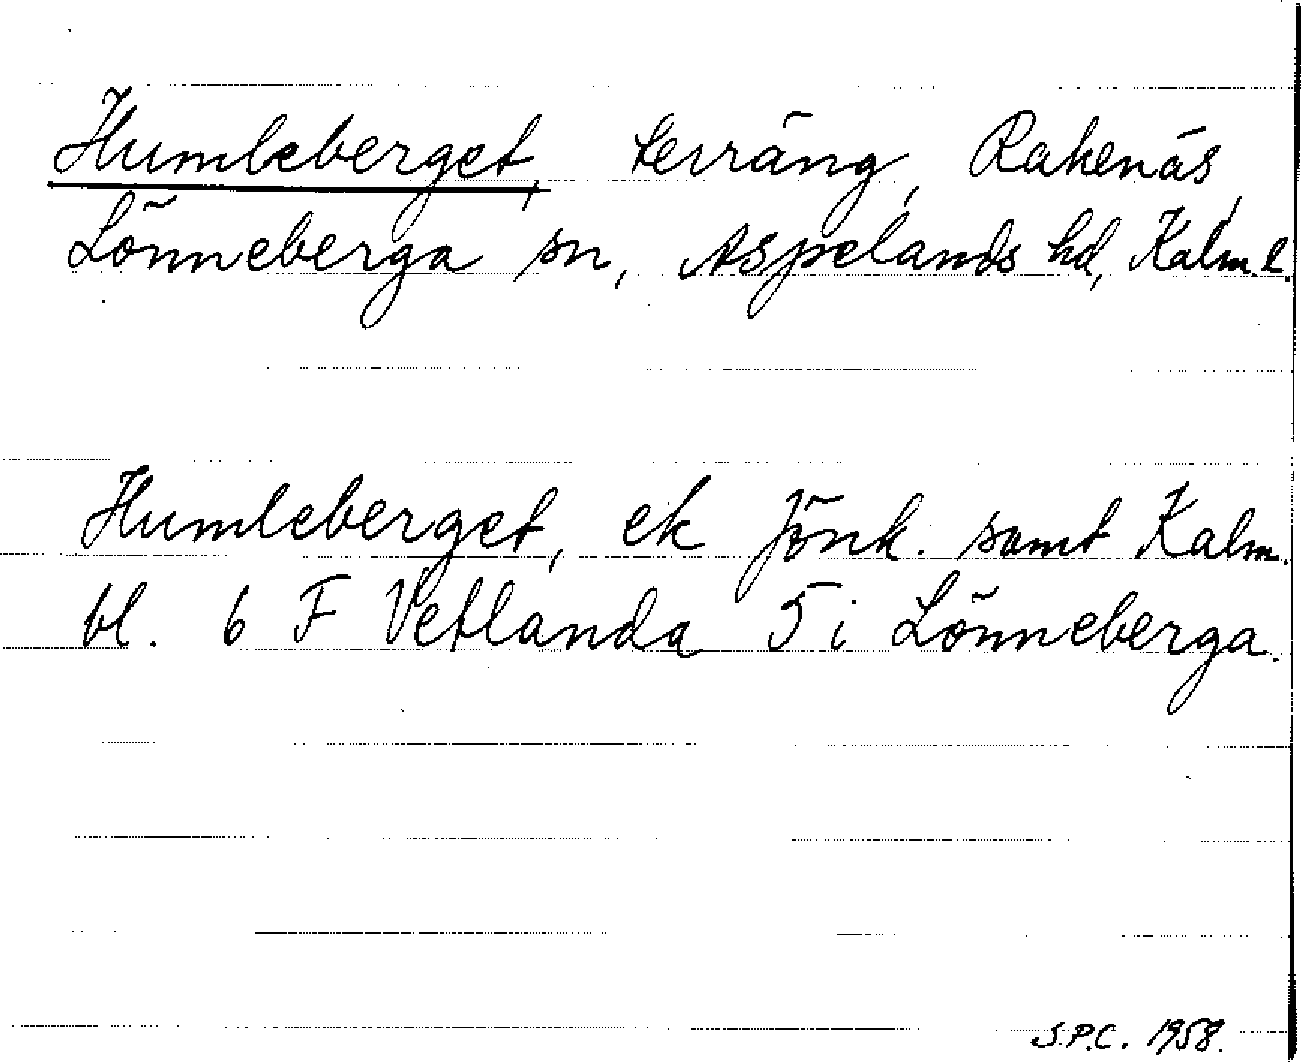 Humleberget, terräng, Rakenäs,
Lönneberga sn, Aspelands hd, Kalm. l.
Humleberget, ek Jönk. samt Kalm.
bl. 6 F Vetlanda 5 i Lönneberga.
S.P.C. 1958.